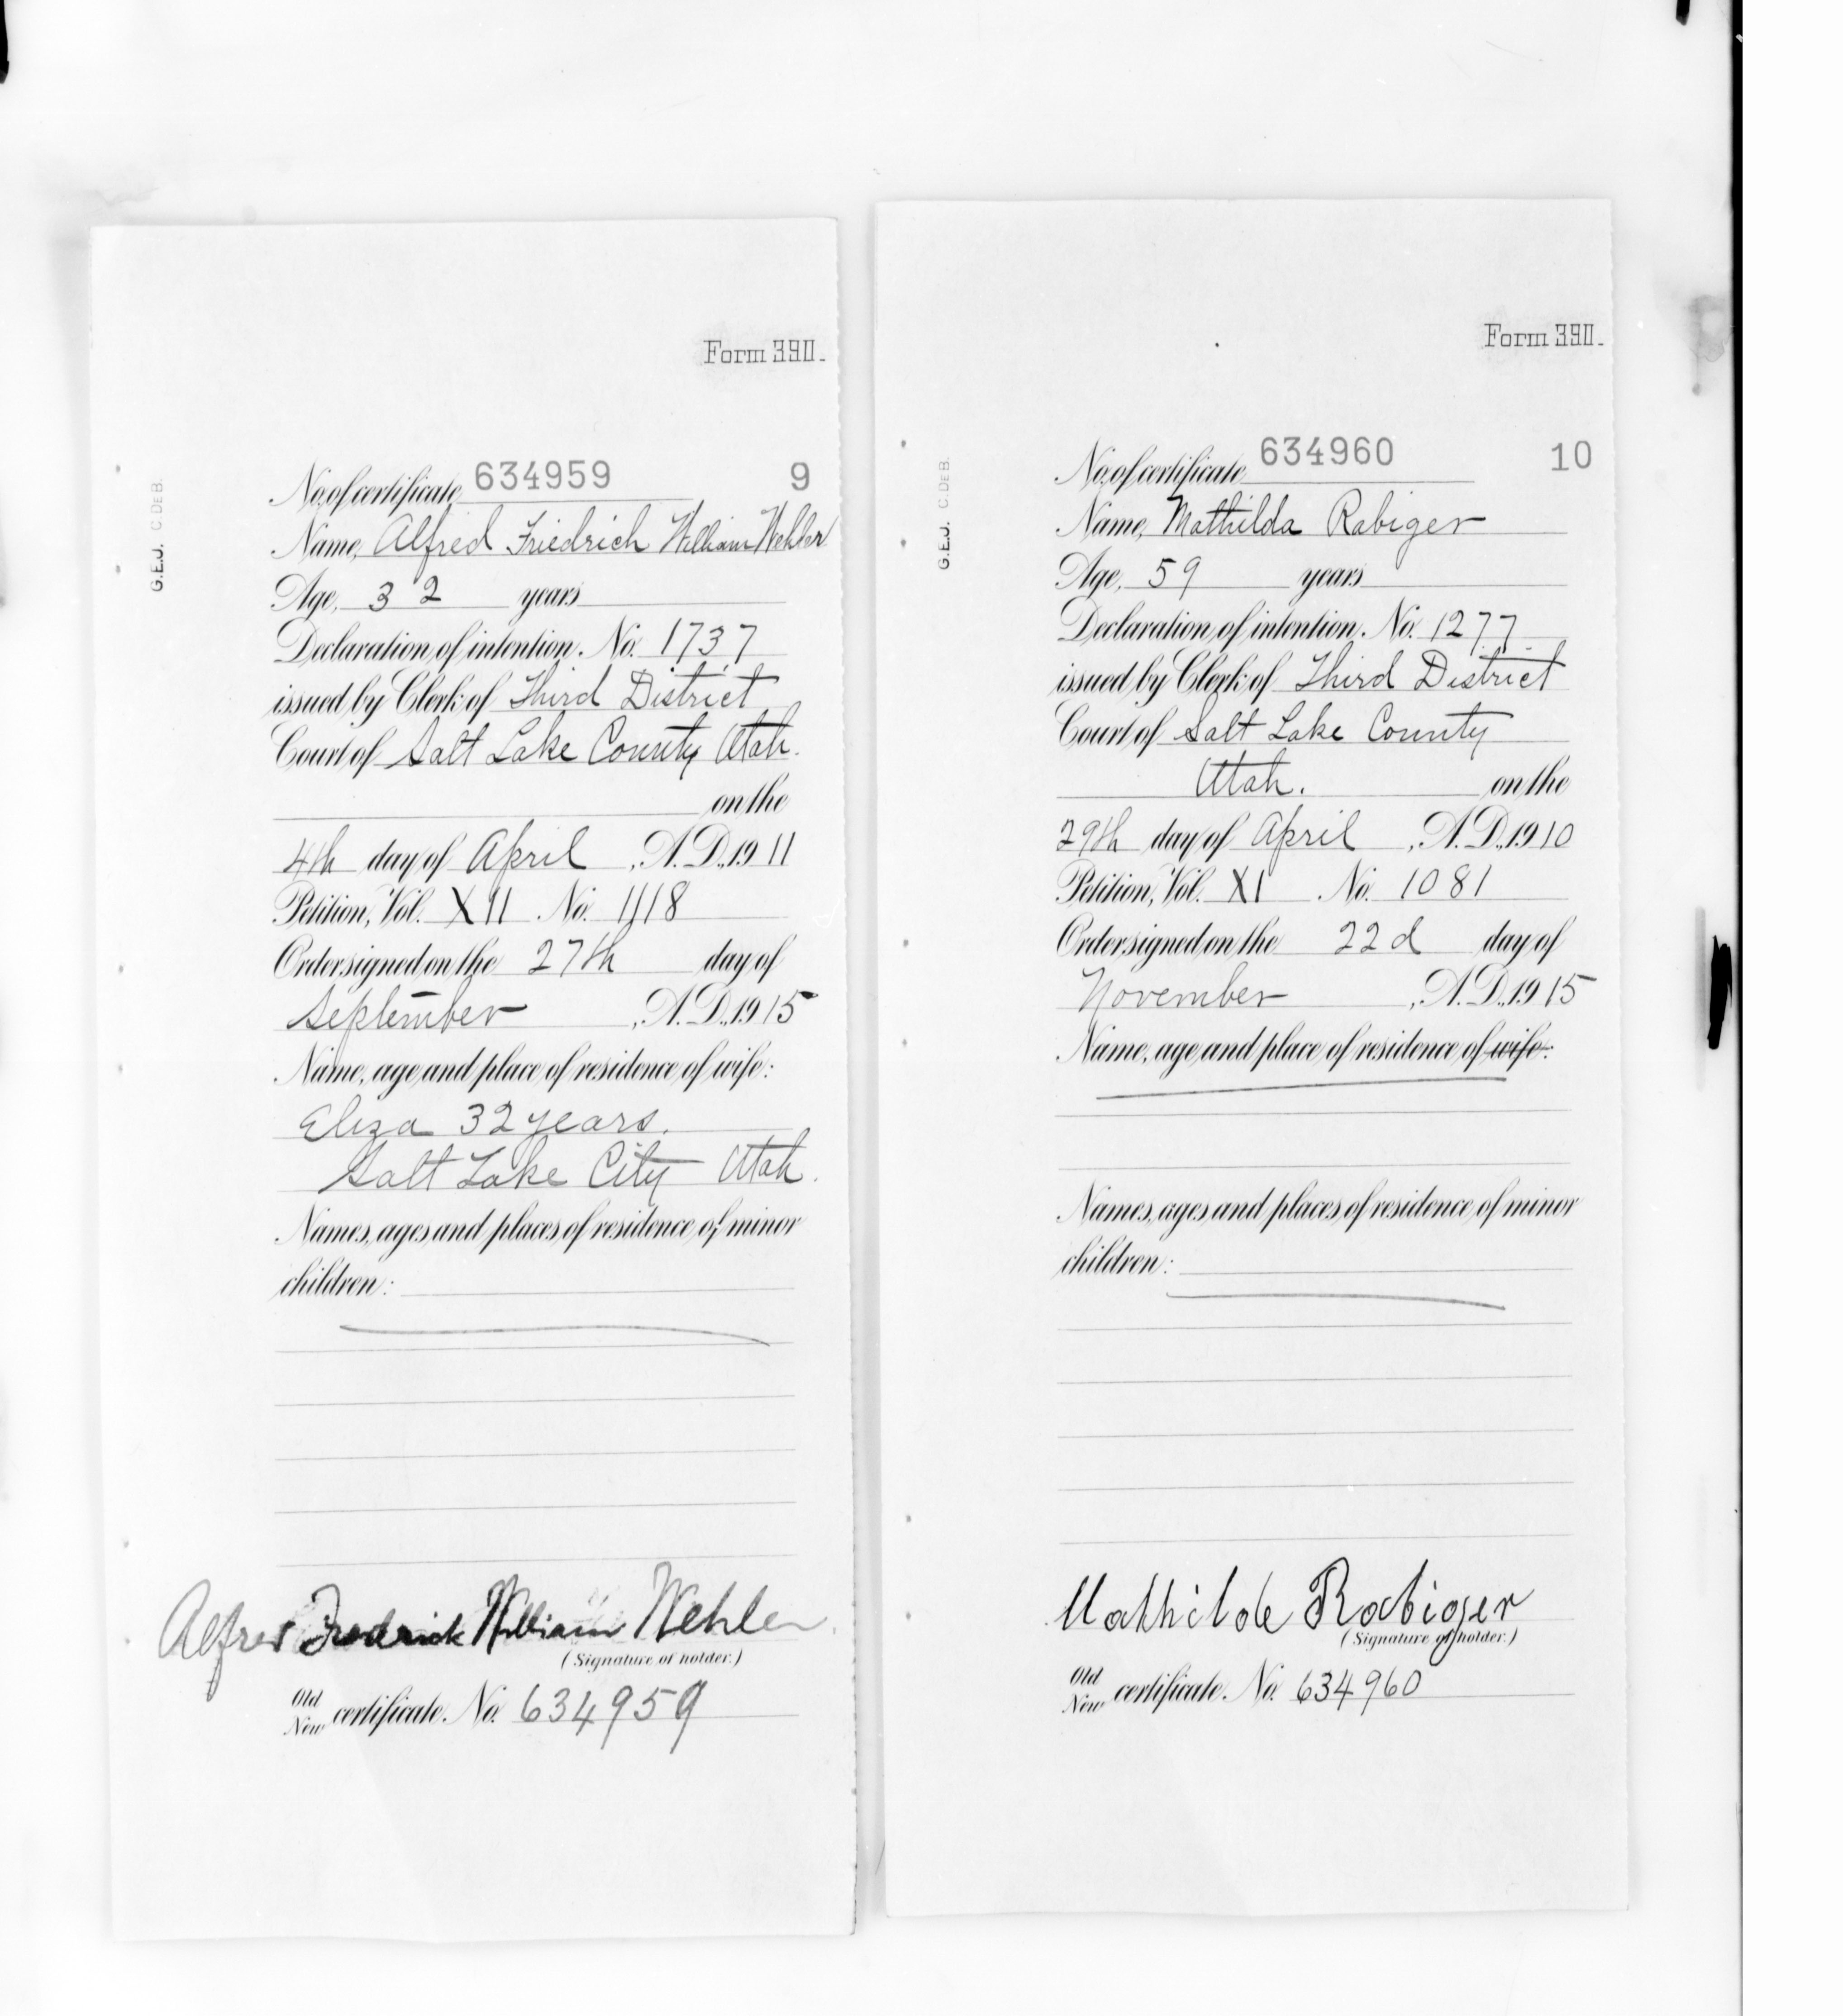 Form 390.
G.E.J. C.DEB.
No. of certificate 634959 9
Name, Alfred Friedrich William Wehler
Age, 32 years
Declaration of intention. No. 1737
issued by Clerk of Third District
Court of Salt Lake County Utah.
on the
4th day of April, A.D., 1911
Petition, Vol. XII No. 1118
Order signed on the 27th day of
September, A.D., 1915
Name, age and place of residence of wife:
Eliza 32 years.
Salt Lake City Utah.
Names, ages and places of residence of minor
children:
Alfred Fredrick William Wehler
(Signature of holder.)
Old
New certificate. No. 634959
Form 390.
G.E.J. C.DEB.
No. of certificate 634960 10
Name, Mathilda Rabiger
Age, 59 years
Declaration of intention. No. 1277
issued by Clerk of Third District
Court of Salt Lake County
Utah. on the
29th day of April, A.D., 1910
Petition, Vol. XI No. 1081
Order signed on the 22d day of
November, A.D., 1915
Name, age and place of residence of wife:
Names, ages and places of residence of minor
children:
Mathilde Rabiger
(Signature of holder.)
Old
New certificate. No. 634960